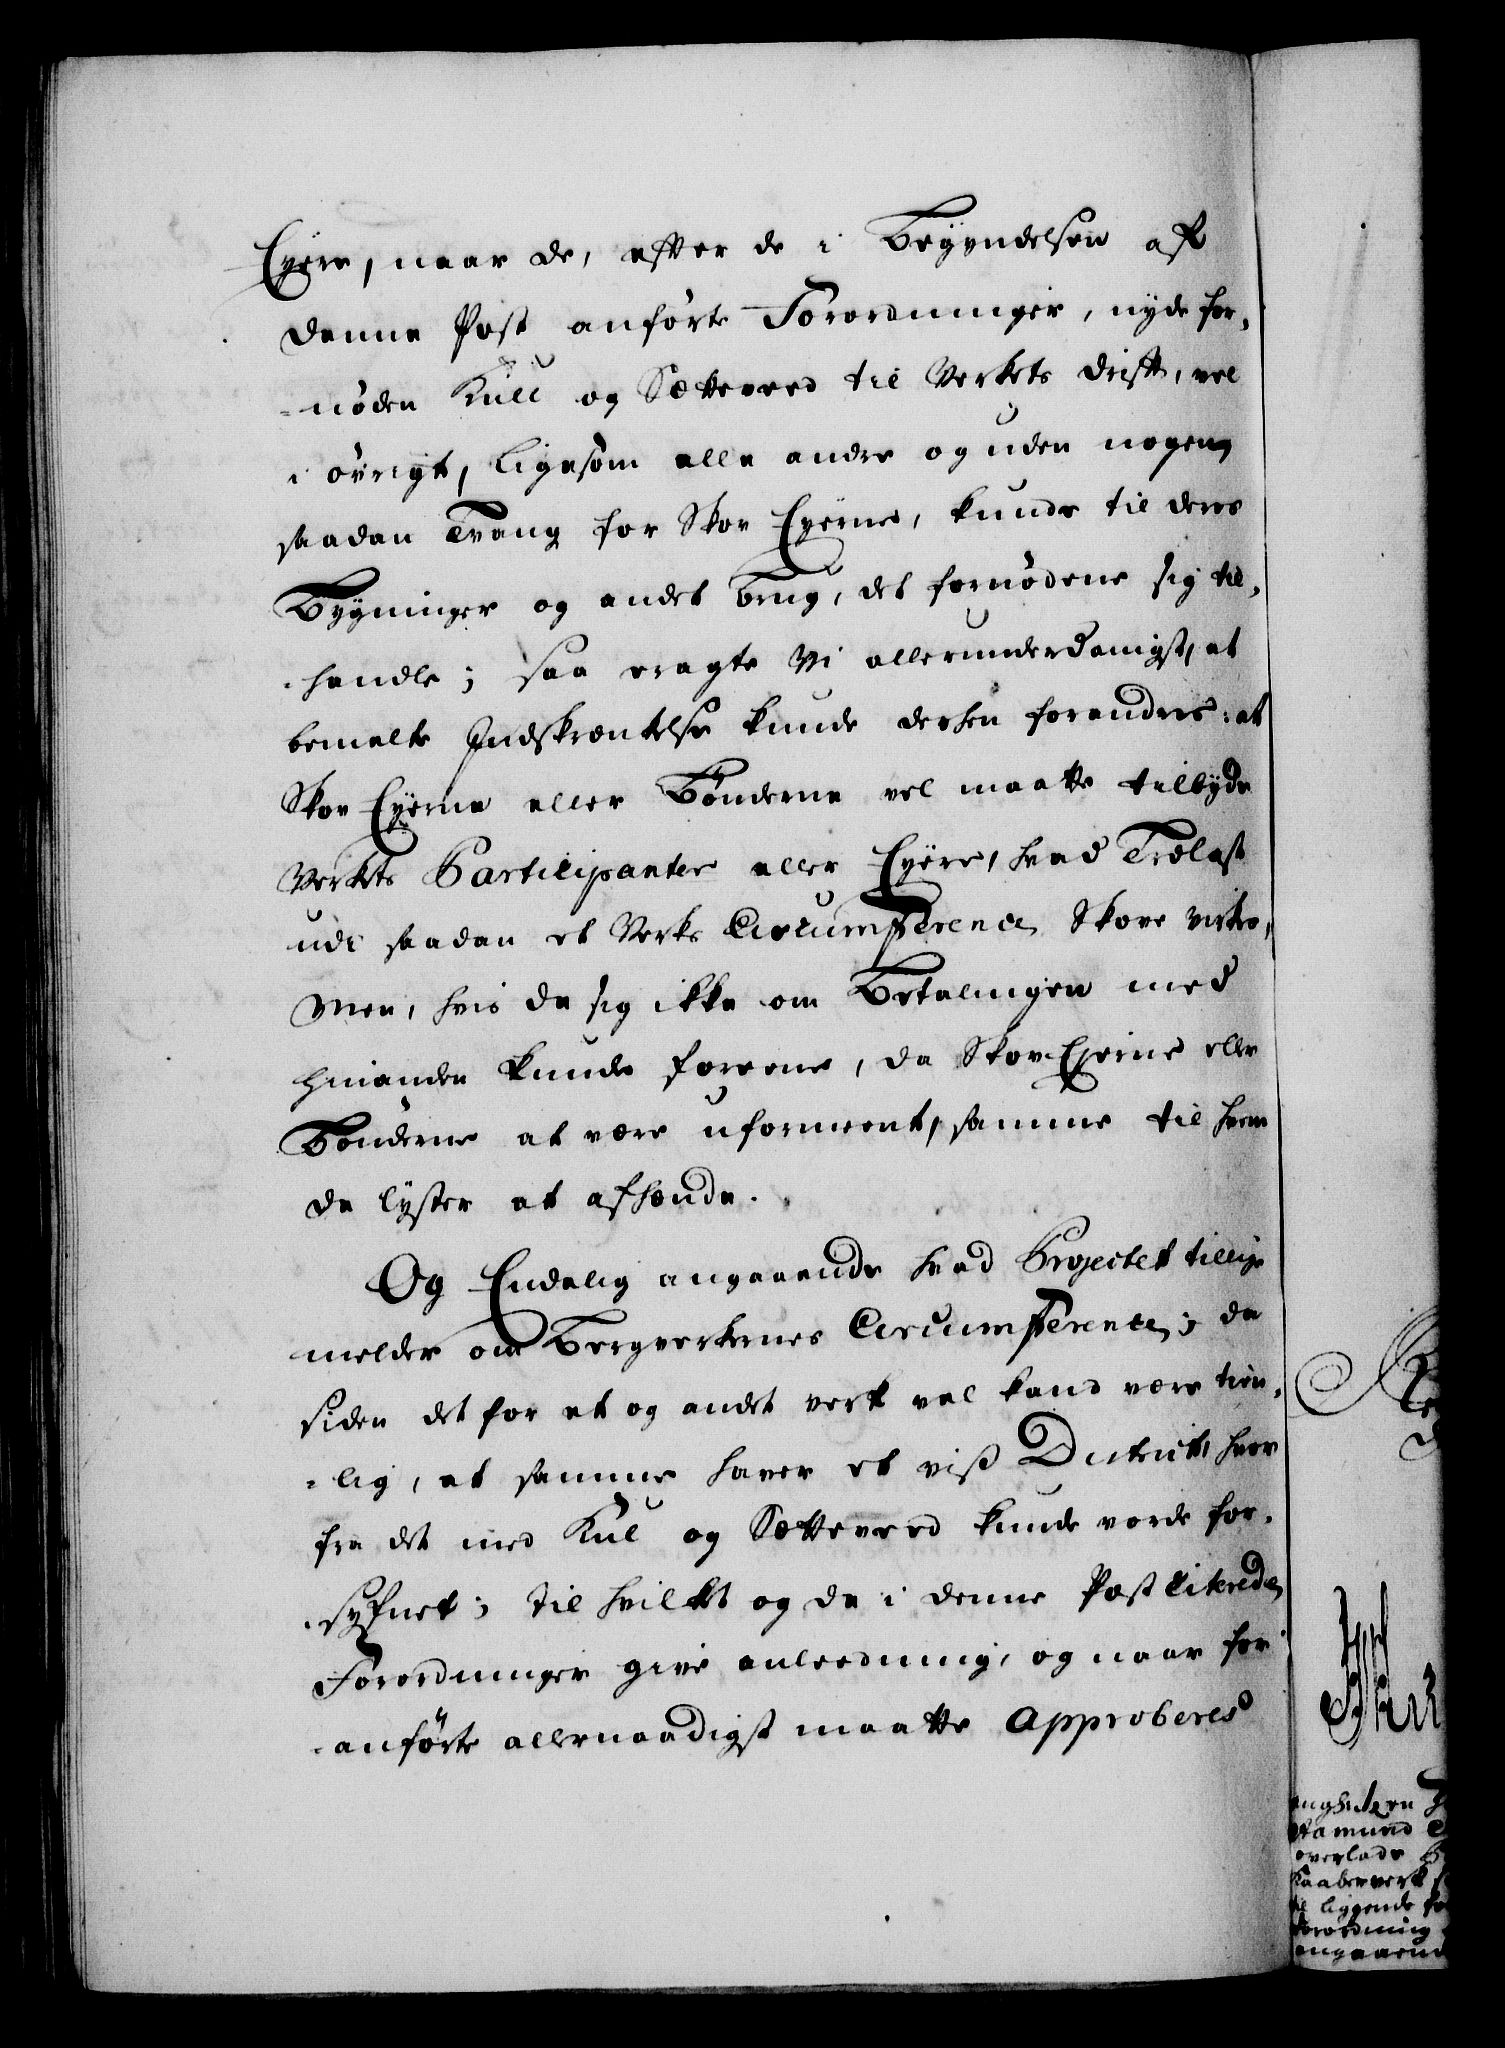 Eyere, naar de, efter de i Begyndelsen af
denne Post anførte Forordninger, nyde for„
„nøden Kull og Sætteveed til Verkets drift, vel
i øvrigt, ligesom alle andre og uden nogen
saadan Tvang for Skov Eyerne, kunde til deres
Bygninger og andet brug, det fornødene sig til„
„handle; saa eragte Vi allerunderdanigst, at
bemelte Indskræntelse kunde derhen forandres: at
Skov Eyerne eller Bønderne vel maatte tilbyde
Verkets Participanter eller Eyere, hvad Trælast
udi saadan et Verks Circumference Skove virkes,
Men, hvis de sig ikke om Betalingen med
hinanden kunde foreene, da Skov-Eyerne eller
Bønderne at være uformeent, samme til hvem
de lyster at afhænde.
Og Endelig angaaende hvad Projectet tillige
melder om Bergverkernes Circumference; da
siden det for et og andet verk vel kand være tien„
„lig, at samme haver et viss District, hvor
fra det med Kul og Sætteveed kunde vorde for„
„syfnet; til hvilket og de i denne Post Citerede
Forordninger give anleedning, og naar for
„anførte allernaadigst maatte Approberes
enghs
Aamund
overlade
Kaaberverk
til liggende
forordning
angaaend